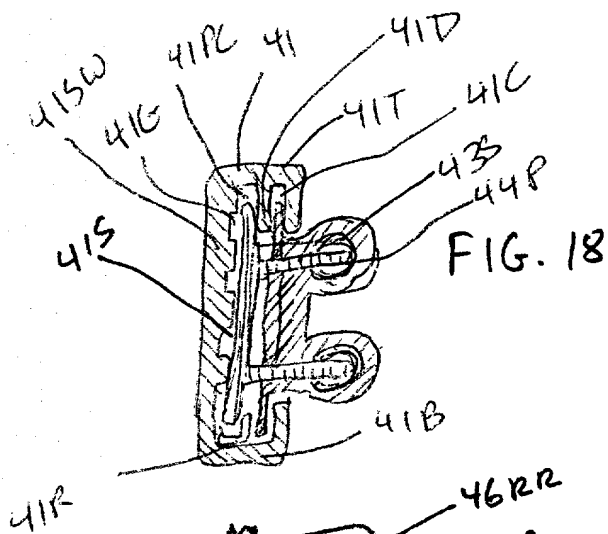 41PC 41 41D
41SW 41G 41T 41C
43S
44P
41S
FIG. 18
41B
41R
46RR